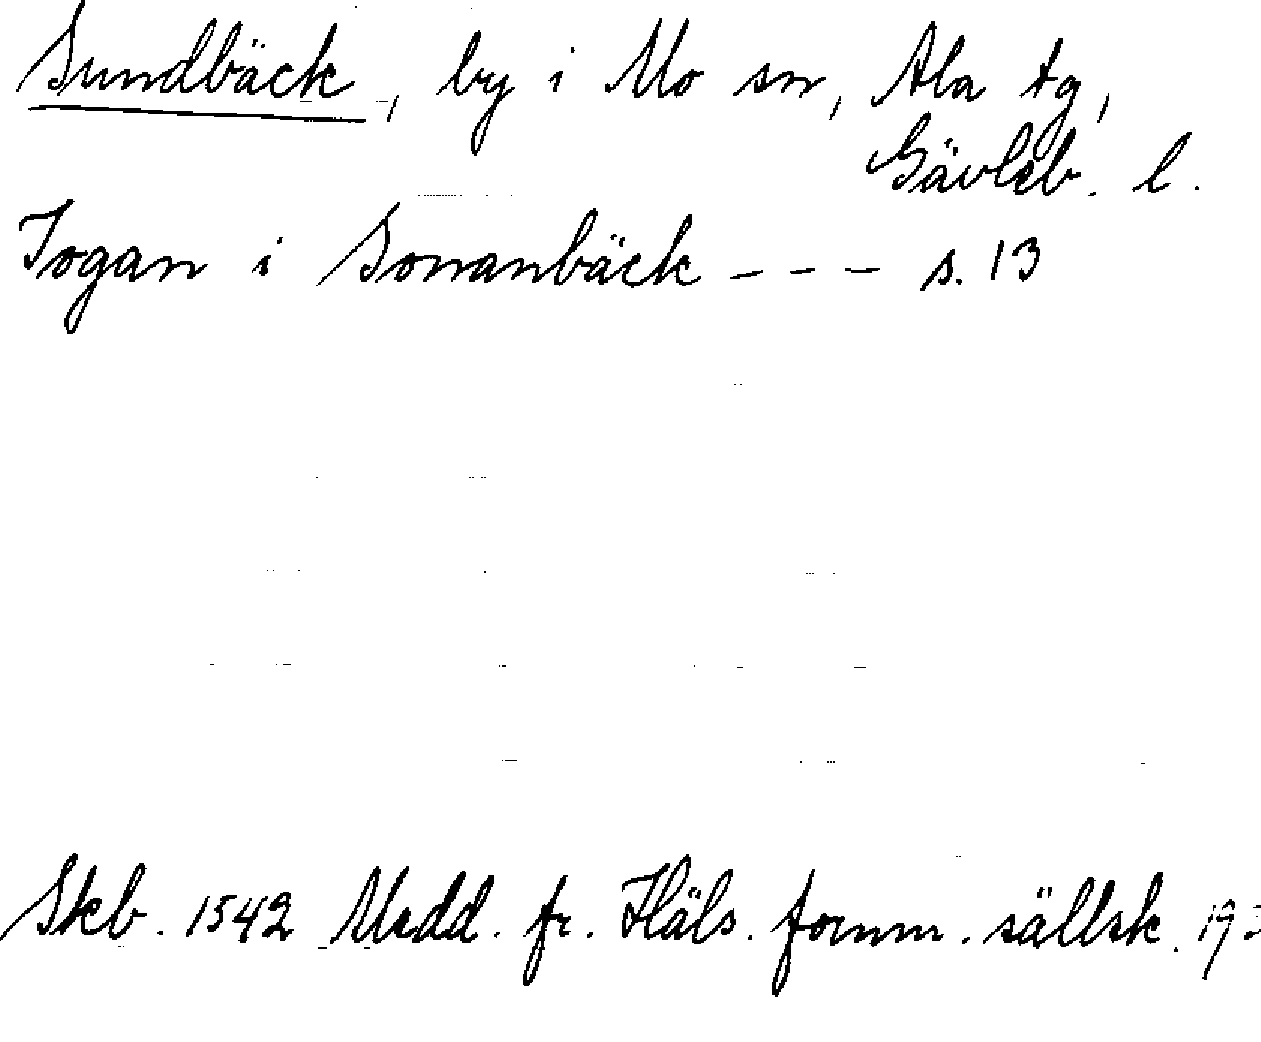 Sundbäck, by i Mo sn, Ala tg,
Gävleb. l.
Jogan i Sonanbäck - - - s. 13
Skb. 1542 Medd. fr. Häls. fornm. sällsk. 19